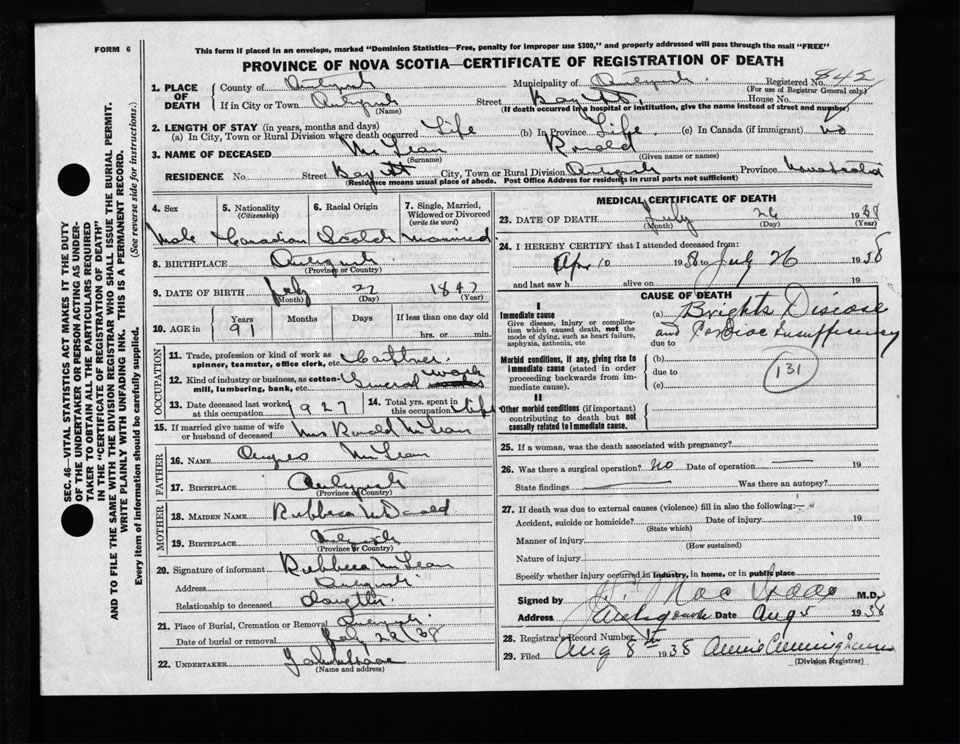 FORM 6
This form if placed in an envelope, marked "Dominion Statistics—Free, penalty for improper use $300," and properly addressed will pass through the mail "FREE"
PROVINCE OF NOVA SCOTIA—CERTIFICATE OF REGISTRATION OF DEATH
1. PLACE OF DEATH
County of
Municipality of
Registered No. 842
(For use of Registrar General only)
If in City or Town
(Name)
Street Bay St.
House No.
(If death occurred in a hospital or institution, give the name instead of street and number)
2. LENGTH OF STAY (in years, months and days)
(a) In City, Town or Rural Division where death occurred Life (b) In Province Life (c) In Canada (if immigrant) no
3. NAME OF DECEASED McLean Ronald
(Surname) (Given name or names)
RESIDENCE No. Street Bay St City, Town or Rural Division Province Nova Scotia
(Residence means usual place of abode. Post Office Address for residents in rural parts not sufficient)
4. Sex
5. Nationality (Citizenship)
6. Racial Origin
7. Single, Married, Widowed or Divorced (write the word)
Male Canadian Scotch Married
8. BIRTHPLACE
(Province or Country)
9. DATE OF BIRTH July 22 1847
(Month) (Day) (Year)
10. AGE in
Years Months Days If less than one day old
91
hrs. or min.
OCCUPATION
11. Trade, profession or kind of work as spinner, teamster, office clerk, etc.
12. Kind of industry or business, as cotton-mill, lumbering, bank, etc. General work
13. Date deceased last worked at this occupation 1927
14. Total yrs. spent in this occupation Life
15. If married give name of wife or husband of deceased Mrs Ronald McLean
FATHER
16. NAME Angus McLean
17. BIRTHPLACE
(Province or Country)
MOTHER
18. MAIDEN NAME Rubbeca McDonald
19. BIRTHPLACE
(Province or Country)
20. Signature of informant Rubbeca McLean
Address
Relationship to deceased Daughter
21. Place of Burial, Cremation or Removal
Date of burial or removal July 28/38
22. UNDERTAKER
(Name and address)
MEDICAL CERTIFICATE OF DEATH
23. DATE OF DEATH July 26 1938
(Month) (Day) (Year)
24. I HEREBY CERTIFY that I attended deceased from:
Apr 10 1938 to July 26 1938
and last saw h alive on 19
CAUSE OF DEATH
I
Immediate cause
Give disease, injury or complication which caused death, not the mode of dying, such as heart failure, asphyxia, asthenia, etc
(a) Brights Disease
and Cardiac Insufficiency
due to
Morbid conditions, if any, giving rise to immediate cause (stated in order proceeding backwards from immediate cause).
(b)
due to
(c)
131
II
Other morbid conditions (if important) contributing to death but not causally related to immediate cause.
25. If a woman, was the death associated with pregnancy?
26. Was there a surgical operation? no Date of operation 19
State findings Was there an autopsy?
27. If death was due to external causes (violence) fill in also the following:
Accident, suicide or homicide? Date of injury 19
(State which)
Manner of injury
(How sustained)
Nature of injury
Specify whether injury occurred in industry, in home, or in public place
Signed by M.D.
Address Antigonish Date Aug 5 1938
28. Registrar's Record Number
29. Filed Aug 8th 1938 Annie Cunningham
(Division Registrar)
SEC. 46—VITAL STATISTICS ACT MAKES IT THE DUTY
OF THE UNDERTAKER OR PERSON ACTING AS UNDER-
TAKER TO OBTAIN ALL THE PARTICULARS REQUIRED
IN THE "CERTIFICATE OF REGISTRATION OF DEATH"
AND TO FILE THE SAME WITH THE DIVISION REGISTRAR WHO SHALL ISSUE THE BURIAL PERMIT.
WRITE PLAINLY WITH UNFADING INK. THIS IS A PERMANENT RECORD.
Every item of information should be carefully supplied. (See reverse side for instructions.)